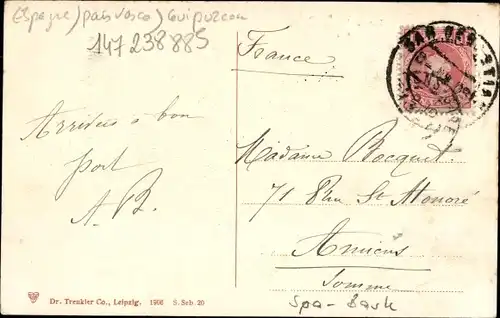 (Espagne) pais vasco) Guipuzcoa
147 238 885
France
SAN SEBASTIAN
Arrivée à bon
port
A. B.
Madame Bocquet
71 Rue St Honoré
Amiens
Somme
Dr. Trenkler Co., Leipzig. 1906 S. Seb. 20
Spa-Bask